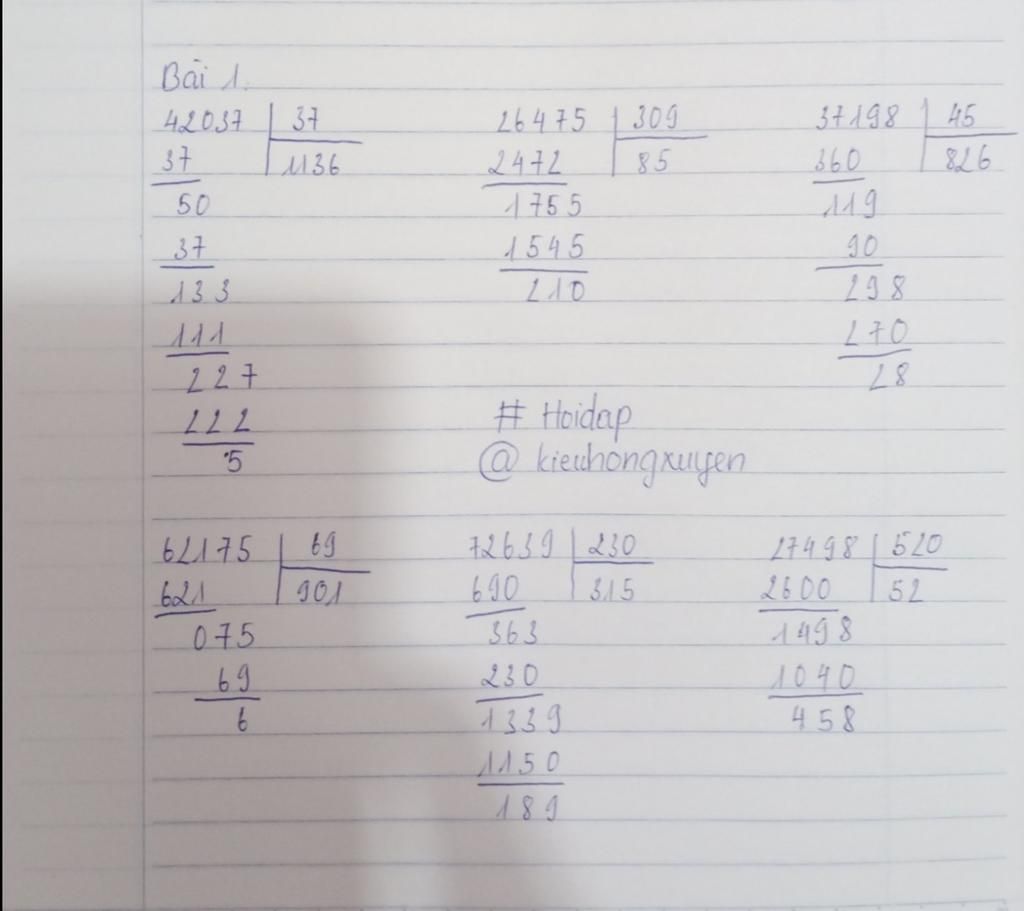 Bài 1.
42037 37 26475 309 37198 45
37 1136 2472 85 360 826
50 1755 119
37 1545 90
133 210 298
111 270
227 28
222 # Hoidap
5 @ kieuhongxuyen
62175 69 72639 230 27498 520
621 901 690 315 2600 52
075 363 1498
69 230 1040
6 1339 458
1150
189